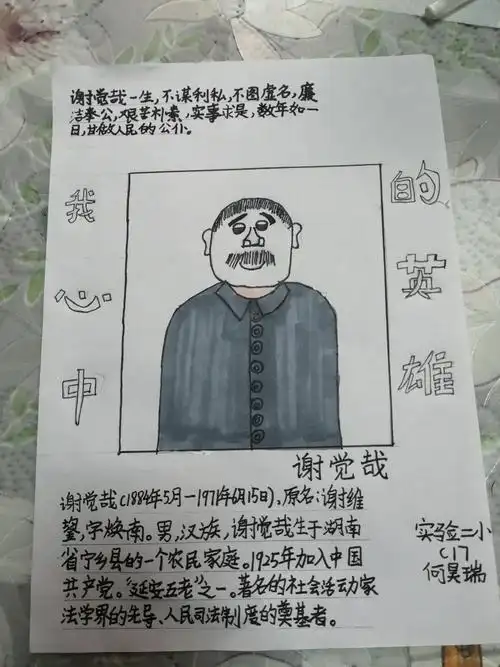 谢觉哉一生，不谋利私，不图虚名，廉
洁奉公，艰苦朴素，实事求是，数年如一
日，甘做人民的公仆。
我心中
的英雄
谢觉哉
谢觉哉（1884年5月—1971年6月15日），原名：谢维
鋆，字焕南。男，汉族，谢觉哉生于湖南
省宁乡县的一个农民家庭。1925年加入中国
共产党。“延安五老”之一。著名的社会活动家
法学界的先导、人民司法制度的奠基者。
实验二小
C17
何昊瑞